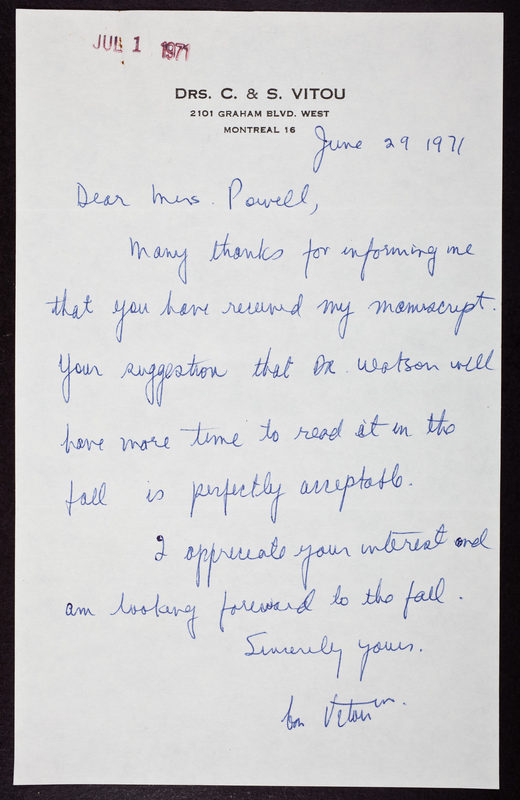 JUL 1 1971
DRS. C. & S. VITOU
2101 GRAHAM BLVD. WEST
MONTREAL 16
June 29 1971
Dear Mrs. Powell,
Many thanks for informing me
that you have received my manuscript.
Your suggestion that Dr. Watson will
have more time to read it in the
fall is perfectly acceptable.
I appreciate your interest and
am looking foreward to the fall.
Sincerely yours.
Vitou